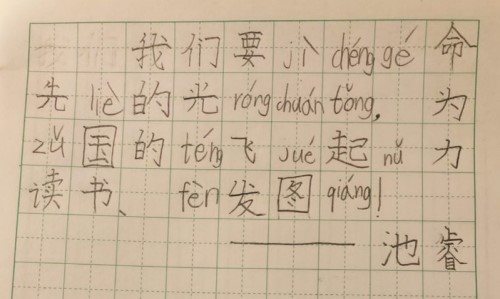 我们要jìchénggé命
先liè的光róngchuántǒng,为
zǔ国的téng飞jué起nǔ力
读书、fèn发图qiáng!
——池睿